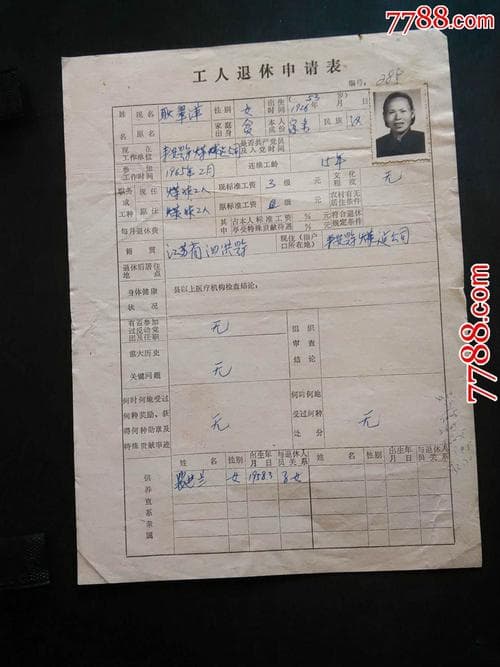 7788.com
工人退休申请表
编号: 288
姓 现名 耿翠萍 性别 女 出生时间 (53岁) 1926年 月 日
名 原名 家庭出身 贫 本人成份 家务 民族 汉
现在工作单位 煤炭公司 是否共产党员及入党时间
参加工作时间 1965年2月 连续工龄 15年
职务或工种 现任 煤炭工人 现标准工资 3 级 元 文化程度 无
原任 煤炭工人 原标准工资 级 元 农村有无居住条件
每月退休费 其中 占本人标准工资 % 元 符合退休规定条件
享受特殊贡献待遇 % 元
籍贯 江苏省泗洪县 现住(由户口所在地) 煤炭公司
退休后居住地点
身体健康状况 县以上医疗机构检查结论:
有否参加过反动党团及任职 无 组织审查结论
重大历史关键问题 无
何时何地受过何种奖励、获得何种勋章及特殊贡献事迹 无 何时何地受过何种处分 无
供养直系亲属 姓名 性别 出生年月日 与退休人员关系 姓名 性别 出生年月日 与退休人员关系
女 1958.3 子女
7788.com